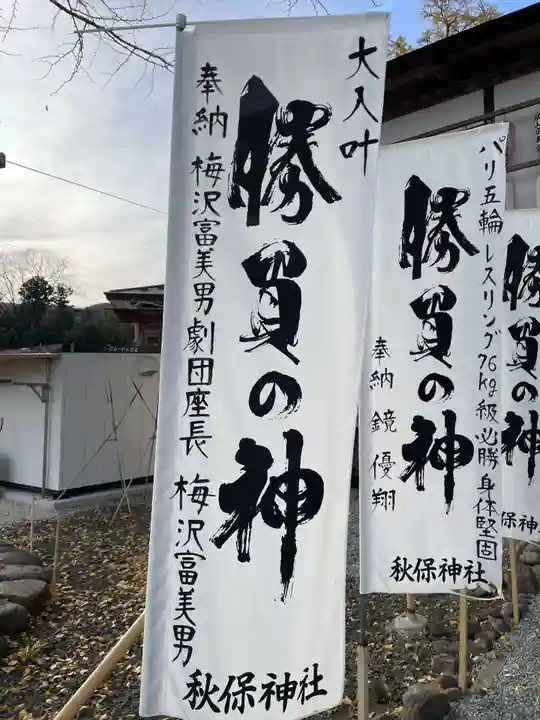 大入叶
勝負の神
奉納 梅沢富美男劇団座長 梅沢富美男
秋保神社
パリ五輪レスリング76kg級必勝 身体堅固
勝負の神
奉納 鏡優翔
秋保神社
勝負の神
保神社